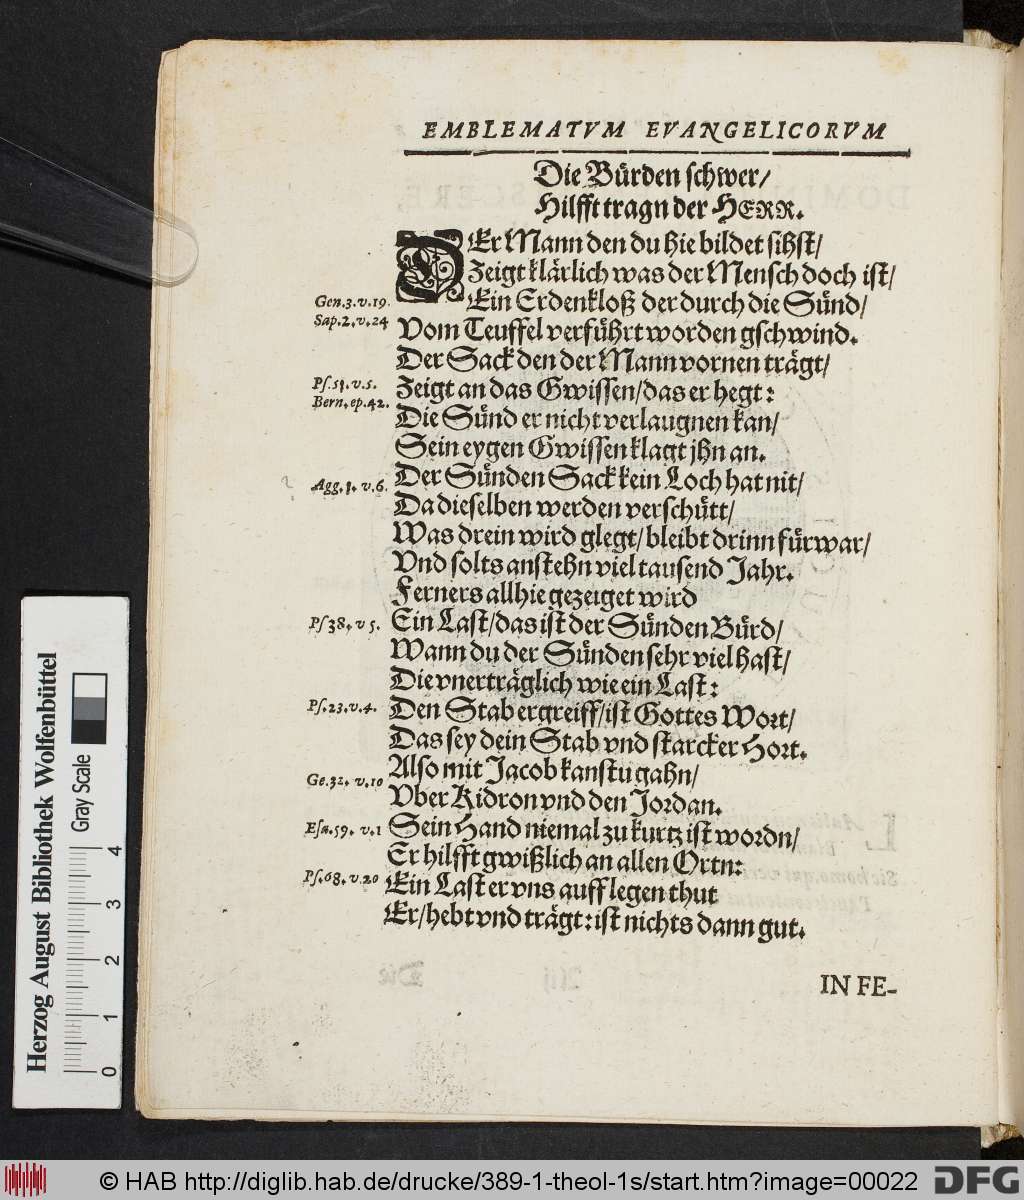 EMBLEMATVM EVANGELICORVM
Die Bürden schwer/
Hilfft tragn der HERR.
DEr Mann den du hie bildet sihst/
Zeigt klärlich was der Mensch doch ist/
Gen.3.v.19. Ein Erdenkloß der durch die Sünd/
Sap.2.v.24 Vom Teuffel verführt worden gschwind.
Der Sack den der Mann vornen trägt/
Ps.51.v.5. Zeigt an das Gwissen/das er hegt:
Bern.ep.42. Die Sünd er nicht verlaugnen kan/
Sein eygen Gwissen klagt jhn an.
Agg.1.v.6. Der Sünden Sack kein Loch hat nit/
Da dieselben werden verschütt/
Was drein wird glegt/bleibt drinn fürwar/
Vnd solts anstehn viel tausend Jahr.
Ferners allhie gezeiget wird
Ps38.v5. Ein Last/das ist der Sünden Bürd/
Wann du der Sünden sehr viel hast/
Die vnerträglich wie ein Last:
Ps.23.v.4. Den Stab ergreiff/ist Gottes Wort/
Das sey dein Stab vnd starcker Hort.
Also mit Jacob kanstu gahn/
Ge.32.v.10 Vber Kidron vnd den Jordan.
Esa.59.v.1 Sein Hand niemal zu kurtz ist wordn/
Er hilfft gwißlich an allen Ortn:
Ps.68.v.20 Ein Last er vns aufflegen thut
Er/hebt vnd trägt: ist nichts dann gut.
IN FE-
Herzog August Bibliothek Wolfenbüttel
Gray Scale
0 1 2 3 4
© HAB http://diglib.hab.de/drucke/389-1-theol-1s/start.htm?image=00022
DFG